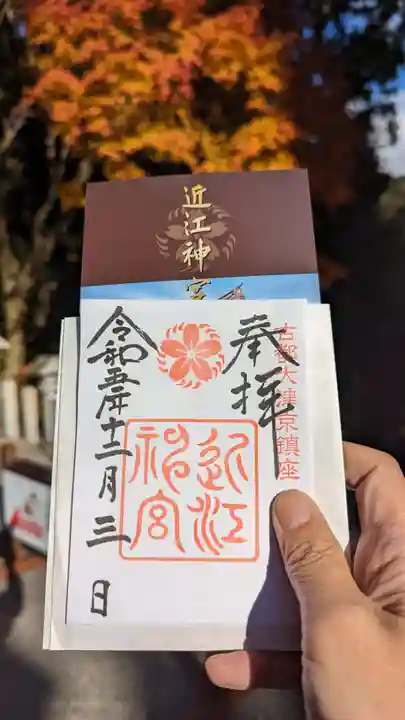 近江神宮
古都大津京鎮座
奉拝
近江神宮
令和五年十二月三日